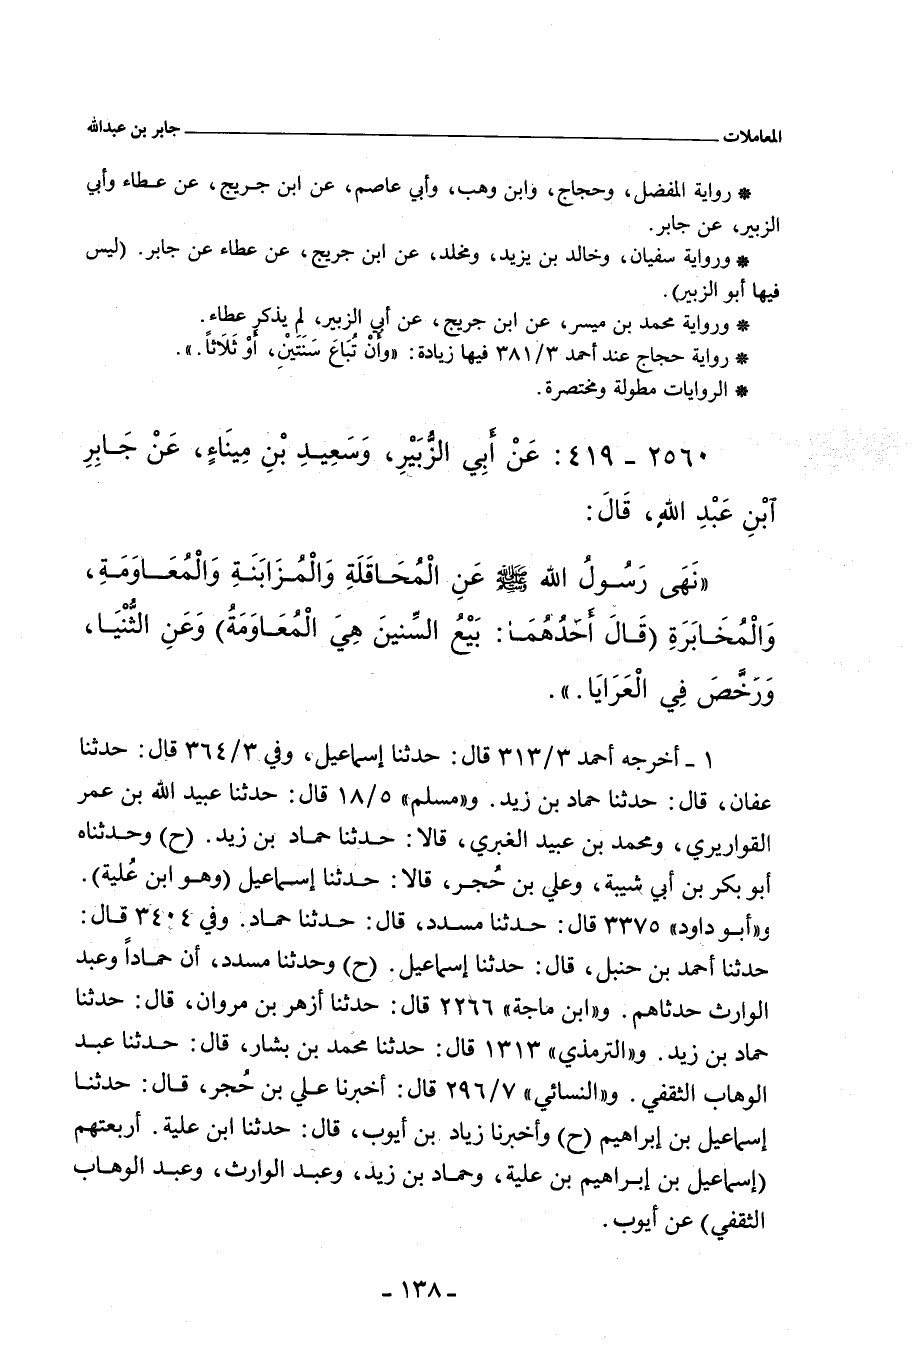 المعاملات ــــــــــــــــــــــــــــــــ جابر بن عبدالله
* رواية المفضل، وحجاج، وابن وهب، وأبي عاصم، عن ابن جريج، عن عطاء وأبي
الزبير، عن جابر.
* ورواية سفيان، وخالد بن يزيد، ومخلد، عن ابن جريج، عن عطاء عن جابر. (ليس
فيها أبو الزبير).
* ورواية محمد بن ميسر، عن ابن جريج، عن أبي الزبير، لم يذكر عطاء.
* رواية حجاج عند أحمد ٣/ ٣٨١ فيها زيادة: «وأَنْ تُبَاعَ سَنَتَيْنِ، أَوْ ثَلَاثاً.».
* الروايات مطولة ومختصرة.
٢٥٦٠ ـ ٤١٩: عَنْ أَبِي الزُّبَيْرِ، وَسَعِيدِ بْنِ مِينَاءٍ، عَنْ جَابِرِ
ٱبْنِ عَبْدِ اللهِ، قَالَ:
«نَهَى رَسُولُ الله ﷺ عَنِ الْمُحَاقَلَةِ وَالْمُزَابَنَةِ وَالْمُعَاوَمَةِ،
وَالْمُخَابَرَةِ (قَالَ أَحَدُهُمَا: بَيْعُ السِّنينَ هِيَ الْمُعَاوَمَةُ) وَعَنِ الثُّنْيَا،
وَرَخَّصَ فِي الْعَرَايَا.».
١ ـ أخرجه أحمد ٣/ ٣١٣ قال: حدثنا إسماعيل، وفي ٣/ ٣٦٤ قال: حدثنا
عفان، قال: حدثنا حماد بن زيد. و«مسلم» ٥/ ١٨ قال: حدثنا عبيد الله بن عمر
القواريري، ومحمد بن عبيد الغبري، قالا: حدثنا حماد بن زيد. (ح) وحدثناه
أبو بكر بن أبي شيبة، وعلي بن حُجر، قالا: حدثنا إسماعيل (وهو ابن عُلية).
و«أبو داود» ٣٣٧٥ قال: حدثنا مسدد، قال: حدثنا حماد. وفي ٣٤٠٤ قال:
حدثنا أحمد بن حنبل، قال: حدثنا إسماعيل. (ح) وحدثنا مسدد، أن حماداً وعبد
الوارث حدثاهم. و«ابن ماجة» ٢٢٦٦ قال: حدثنا أزهر بن مروان، قال: حدثنا
حماد بن زيد. و«الترمذي» ١٣١٣ قال: حدثنا محمد بن بشار، قال: حدثنا عبد
الوهاب الثقفي. و«النسائي» ٧/ ٢٩٦ قال: أخبرنا علي بن حُجر، قال: حدثنا
إسماعيل بن إبراهيم (ح) وأخبرنا زياد بن أيوب، قال: حدثنا ابن علية. أربعتهم
(إسماعيل بن إبراهيم بن علية، وحماد بن زيد، وعبد الوارث، وعبد الوهاب
الثقفي) عن أيوب.
ـ ١٣٨ ـ